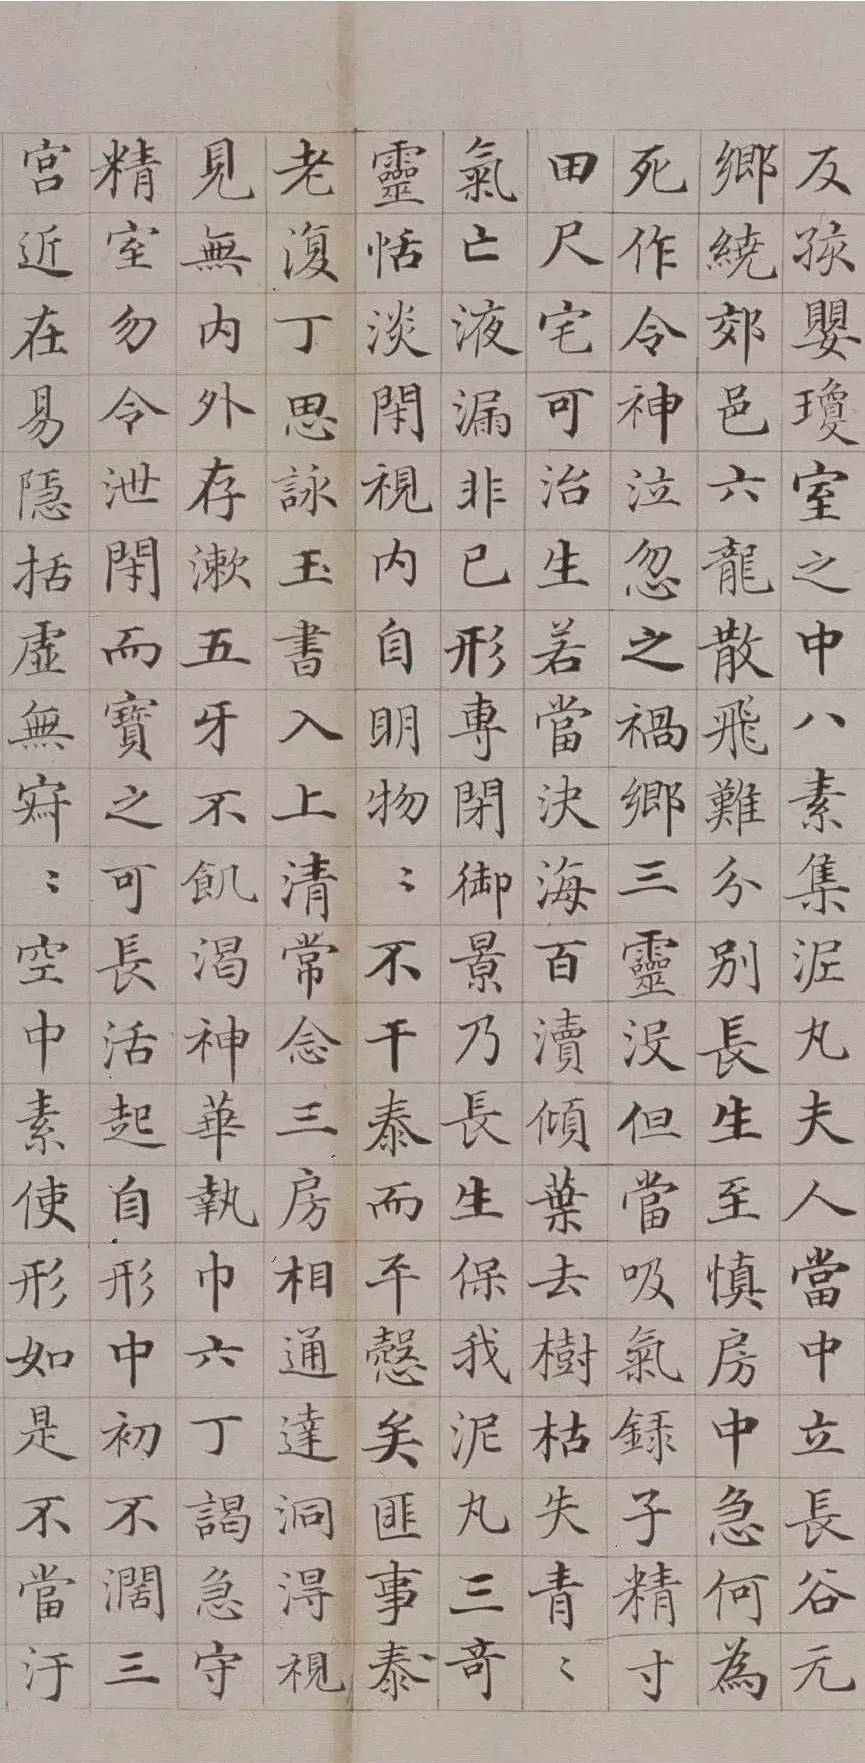 反孩嬰瓊室之中八素集泥丸夫人當中立長谷元
鄉繞郊邑六龍散飛難分別長生至慎房中急何為
死作令神泣忽之禍鄉三靈没但當吸氣録子精寸
田尺宅可治生若當決海百瀆傾葉去樹枯失青〻
氣亡液漏非已形專閉御景乃長生保我泥丸三奇
靈恬淡閑視内自明物〻不干泰而平愨矣匪事泰
老復丁思詠玉書入上清常念三房相通達洞得視
見無内外存漱五牙不飢渴神華執巾六丁謁急守
精室勿令泄閑而寶之可長活起自形中初不濶三
宮近在易隱括虛無㝛〻空中素使形如是不當汙